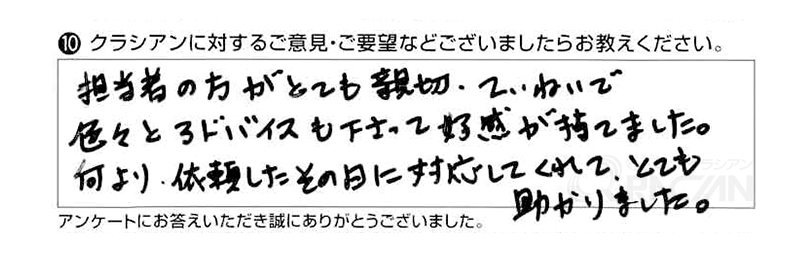 ⑩ クラシアンに対するご意見・ご要望などございましたらお教えください。
担当者の方がとても親切・ていねいで
色々とアドバイスも下さって好感が持てました。
何より、依頼したその日に対応してくれて、とても
助かりました。
クラシアン
アンケートにお答えいただき誠にありがとうございました。